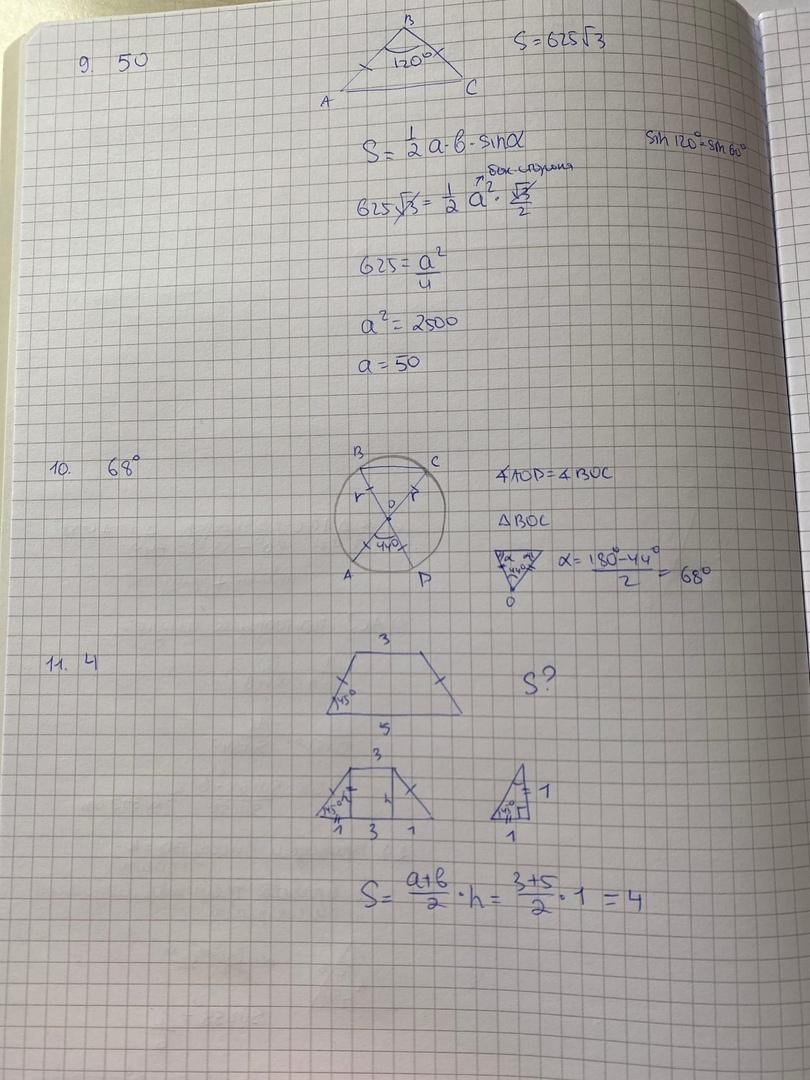 9. 50
B
120°
A
C
S = 625√3
S = 1/2 a·b·sinα
sin 120° = sin 60°
бок. сторона
625√3 = 1/2 a² · √3/2
625 = a²/4
a² = 2500
a = 50
10. 68°
B
C
r
r
O
44°
A
D
∢AOD = ∢BOC
△BOC
α
44°
O
α = (180° - 44°)/2 = 68°
11. 4
3
45°
5
S?
3
45°
h
1 3 1
45°
1
1
S = (a+b)/2 · h = (3+5)/2 · 1 = 4